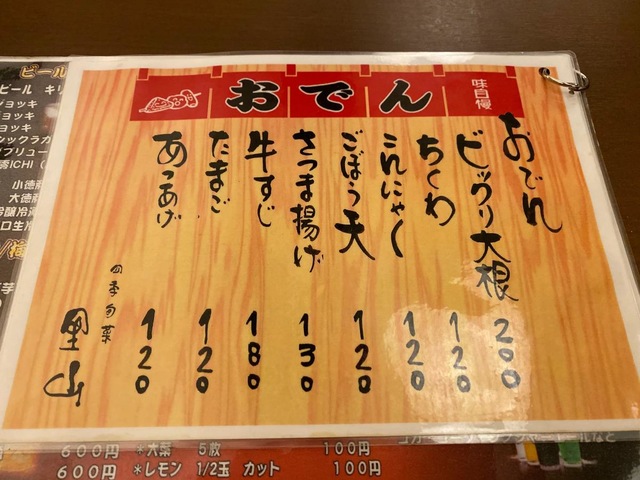 おでん
味自慢
おでん
ビックリ大根 200
ちくわ 120
こんにゃく 120
ごぼう天 120
さつま揚げ 130
牛すじ 180
たまご 120
あつあげ 120
四季旬菜
里山
ビール
ビール キリ
ジョッキ
ジョッキ
小徳
大徳
600円 *大葉 5枚 100円
600円 *レモン 1/2玉 カット 100円